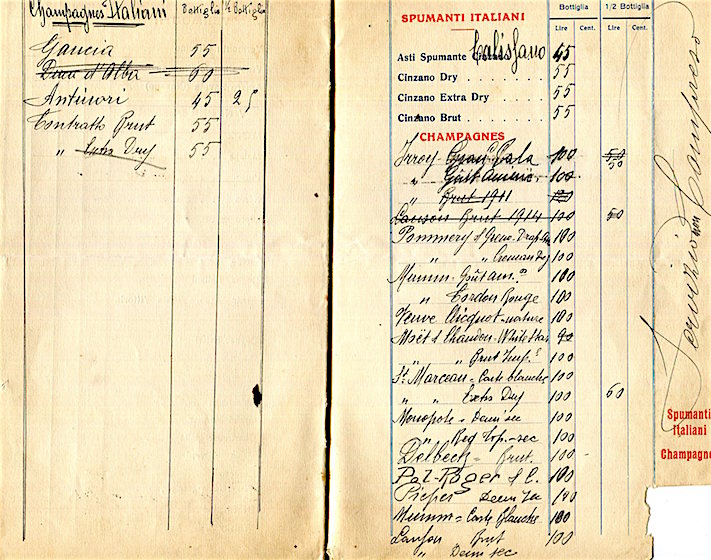 Champagnes Italiani Bottiglia ½ Bottiglia
Gancia 55
Duca d'Alba 60
Antinori 45 25
Contratto Brut 55
" Extra Dry 55
SPUMANTI ITALIANI
Bottiglia 1/2 Bottiglia
Lire Cent. Lire Cent.
Asti Spumante Calissano 45
Cinzano Dry . . . . . . 55
Cinzano Extra Dry . . . . 55
Cinzano Brut . . . . . 55
CHAMPAGNES
Irroy - Gala 100 50 50
" Goût Améric. 100
" Brut 1911 120
Lanson Brut 1914 100 50
Pommery & Greno - 100
" " 100
Mumm - Goût am. 100
" Cordon Rouge 100
Veuve Clicquot - nature 100
Moët & Chandon - White Star 90
" " Brut Imp. 100
St. Marceau - Carte blanche 100
" " Extra Dry 100 60
Monopole - Demi sec 100
" Red Top - sec 100
Delbeck - Brut 100
Pol-Roger & C. 100
Piper Demi Sec 100
Mumm - Carte Blanche 100
Lanson Brut 100
" Demi sec
Servizio non Compreso
Spumanti
Italiani
Champagne